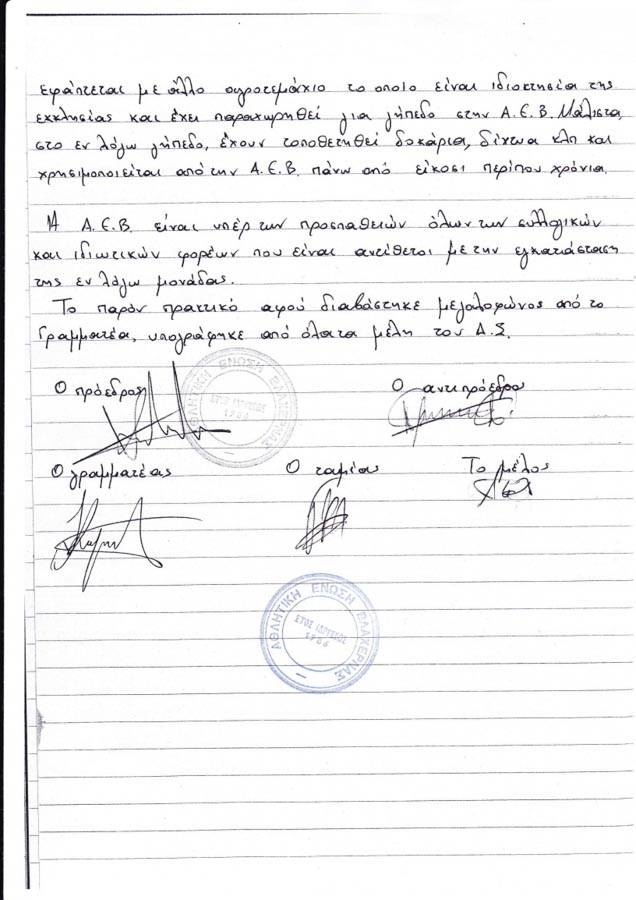 εφάπτεται με άλλο αγροτεμάχιο το οποίο είναι ιδιοκτησία της
εκκλησίας και έχει παραχωρηθεί για γήπεδο στην Α.Ε.Β. Μάλιστα,
στο εν λόγω γήπεδο, έχουν τοποθετηθεί δοκάρια, δίχτυα κλπ και
χρησιμοποιείται από την Α.Ε.Β. πάνω από είκοσι περίπου χρόνια.
Η Α.Ε.Β. είναι υπέρ των προσπαθειών όλων των συλλογικών
και ιδιωτικών φορέων που είναι αντίθετοι με την εγκατάσταση
της εν λόγω μονάδας.
Το παρόν πρακτικό αφού διαβάστηκε μεγαλοφώνος από το
Γραμματέα, υπογράφηκε από όλα τα μέλη του Δ.Σ.
Ο πρόεδρος
Ο αντιπρόεδρος
ΑΘΛΗΤΙΚΗ ΕΝΩΣΗ ΒΛΑΧΕΡΝΑΣ
ΕΤΟΣ ΙΔΡΥΣΕΩΣ
1986
Ο γραμματέας
Ο ταμίας
Το μέλος
ΑΘΛΗΤΙΚΗ ΕΝΩΣΗ ΒΛΑΧΕΡΝΑΣ
ΕΤΟΣ ΙΔΡΥΣΕΩΣ
1986